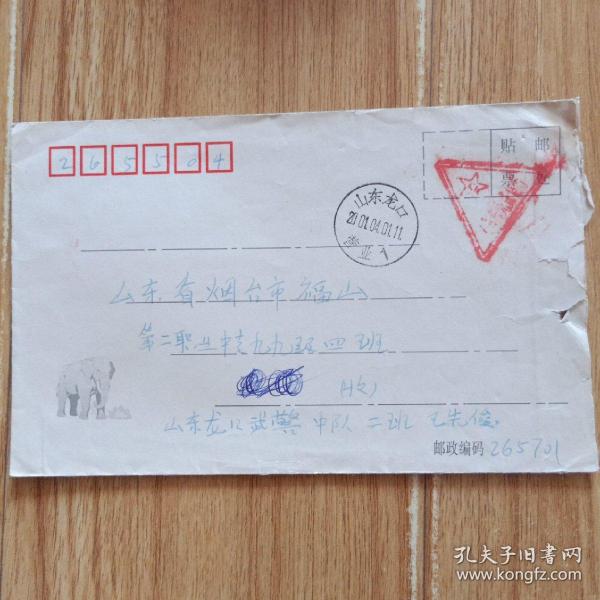 265504
贴 邮
票 处
山东龙口
2001.04.01.11
山东省烟台市福山
第二职业中专九九级四班
(收)
山东龙口武警中队二班 王先俊
邮政编码 265701
孔夫子旧书网
www.kongfz.com